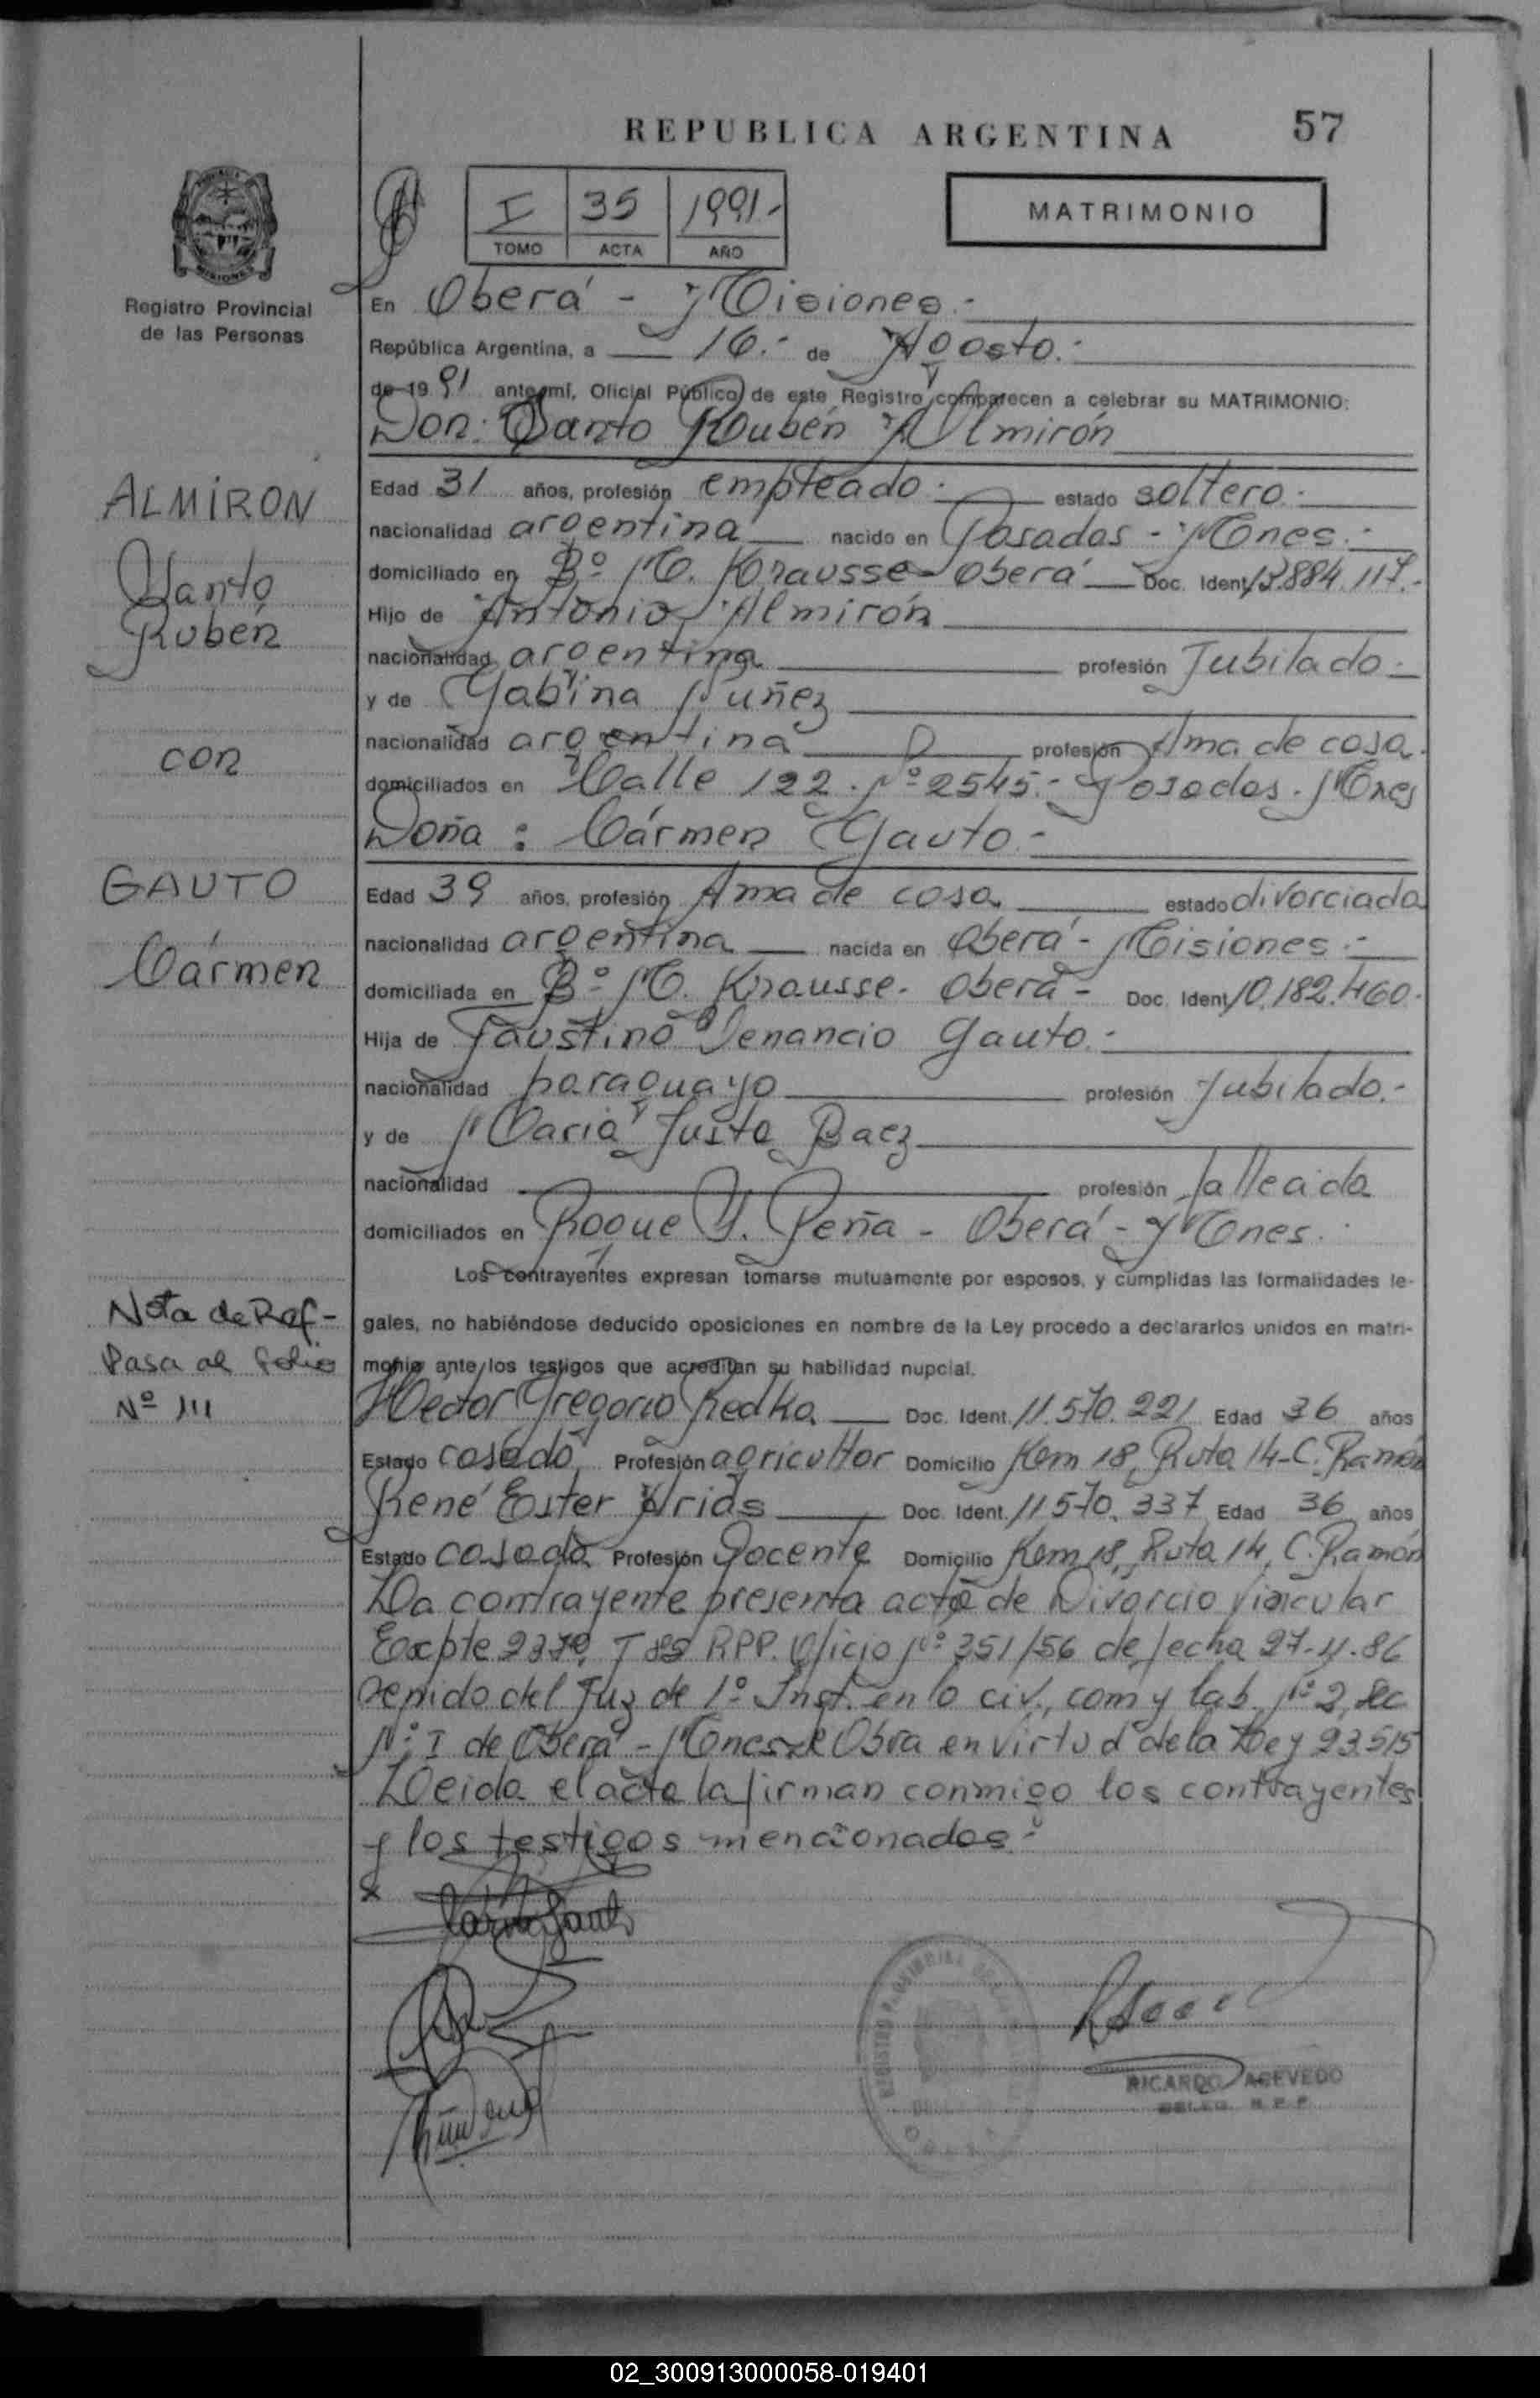 REPUBLICA ARGENTINA
57
I 35 1991.-
TOMO ACTA AÑO
MATRIMONIO
Registro Provincial
de las Personas
En Oberá - Misiones.-
República Argentina, a 16.- de Agosto.-
de 19 91 ante mí, Oficial Público de este Registro comparecen a celebrar su MATRIMONIO:
Don: Santo Rubén Almirón
ALMIRON
Santo
Rubén
con
GAUTO
Cármen
Edad 31 años, profesión empleado.- estado soltero.-
nacionalidad argentina nacido en Posadas - Mones.-
domiciliado en Bº M. Krausse - Oberá Doc. Ident 13.884.117.-
Hijo de Antonio Almirón
nacionalidad argentina profesión Jubilado.-
y de Gabina Nuñez
nacionalidad argentina profesión Ama de casa.
domiciliados en Calle 122. Nº 2545.- Posadas. Mones
Doña: Cármen Gauto.-
Edad 39 años, profesión Ama de casa estado divorciada
nacionalidad argentina nacida en Oberá - Misiones.-
domiciliada en Bº M. Krausse. Oberá - Doc. Ident 10.182.460.
Hija de Faustino Venancio Gauto.-
nacionalidad paraguayo profesión Jubilado.-
y de Maria Justa Baez
nacionalidad profesión fallecida
domiciliados en Roque S. Peña - Oberá - Mones.
Los contrayentes expresan tomarse mutuamente por esposos, y cumplidas las formalidades le-
gales, no habiéndose deducido oposiciones en nombre de la Ley procedo a declararlos unidos en matri-
monio ante los testigos que acreditan su habilidad nupcial.
Nota de Ref-
Pasa al folio
Nº 111
Hector Gregorio Redka Doc. Ident. 11.570.221 Edad 36 años
Estado casado Profesión agricultor Domicilio Kem 18, Ruta 14-C. Ramón
René Ester Arias Doc. Ident. 11570.337 Edad 36 años
Estado casada Profesión Docente Domicilio Kem 18, Ruta 14, C. Ramón
La contrayente presenta acta de Divorcio vincular
Expte RPP. Oficio Nº 351/56 de fecha
del Juz de 1º Inst. en lo civ., com y lab. Nº 2, Sec
Nº I de Oberá - Mones Obra en virtud de la Ley 23.515
Leida el acta la firman conmigo los contrayentes
y los testigos mencionados.-
RICARDO ACEVEDO
DELEG. R.P.P.
02_300913000058-019401